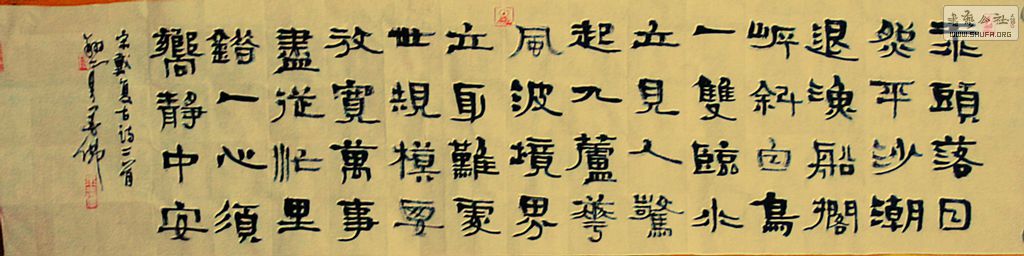 江頭落日
照平沙潮
退漁船擱
岸斜白鳥
一雙臨水
立見人驚
起入蘆華
風波境界
立身難處
世規模要
放寬萬事
盡從忙里
錯一心須
嚮靜中安
宋戴复古詩二首
書藝公社
WWW.SHUFA.ORG